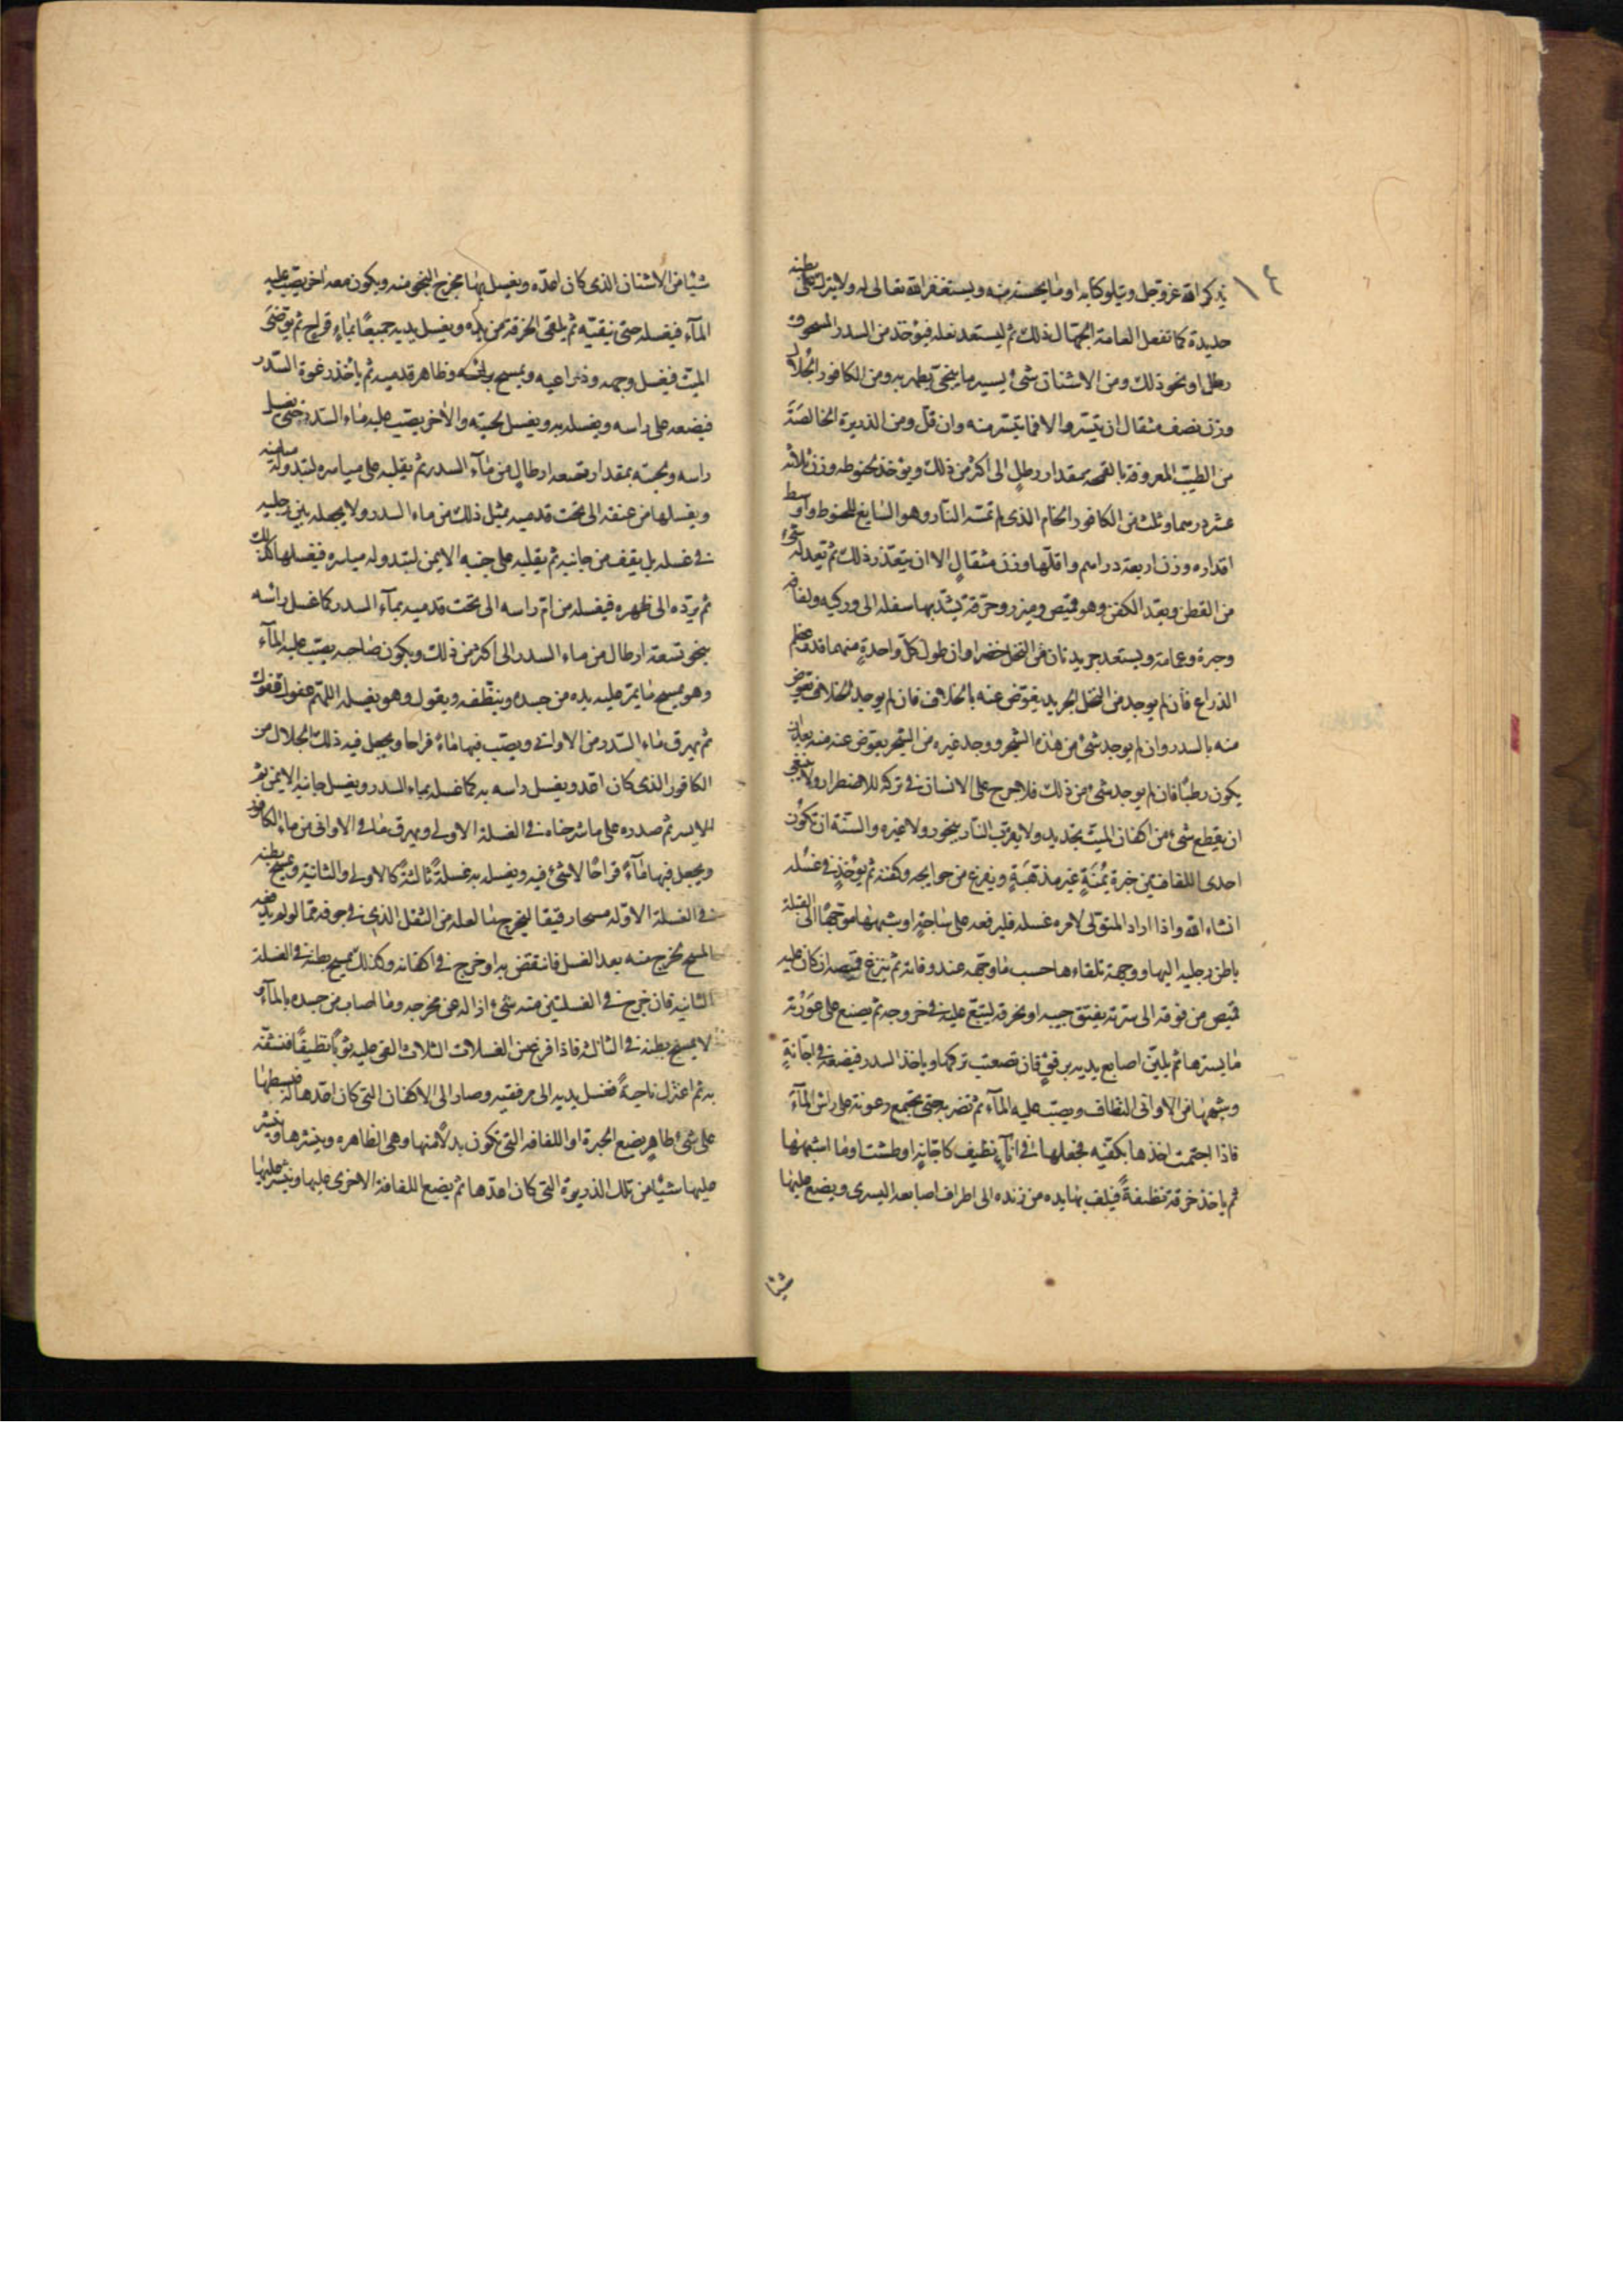 ١٤
يذكر الله عز وجل ويتلو كتابه او ما يحسنه منه ويستغفر الله تعالى له ولا يترك على بطنه
حديدة كما تفعل العامة الجهال ذلك ثم ليستعد لغسله فيؤخذ من السدر المسحوق
رطل او نحو ذلك ومن الاشنان شئ يسير ما ينجى يطهر به ومن الكافور الجلال
وزن نصف مثقال ان تيسر والا فما تيسر منه وان قل ومن الذريرة الخالصة
من الطيب المعروفة بالقمحة مقدار رطل الى اكثر من ذلك ويؤخذ لحنوطه وزن ثلاثة
عشر درهما وثلث من الكافور الخام الذى لم تمسه النار وهو السايغ للحنوط واوسط
اقداره وزن اربعة دراهم واقلها وزن مثقال الا ان يتعذر ذلك ثم تعد له شئ
من القطن ويعد الكفن وهو قميص وميزر وخرقة يشد بها سفله الى وركيه ولفافة
وحبرة وعمامة ويستعد جريدتان من النخل خضراوان طول كل واحدة منهما قدر عظم
الذراع فان لم يوجد من النخل الجريد يعوض عنه بالخلاف فان لم يوجد الخلاف يعوض
منه بالسدر وان لم يوجد شئ من هذه الشجر ووجد غيره من الشجر يعوض عنه منه بعد ان
يكون رطبًا فان لم يوجد شئ من ذلك فلا حرج على الانسان فى تركه للاضطرار ولا ينبغى
ان يقطع شئ من اكفان الميت بحديد ولا يقرب النار ببخور ولا غيره والسنة ان تكون
احدى اللفافتين حبرة يُمنة غير مذهبة ويفرغ من حوايجه وكفنه ثم يؤخذ فى غسله
انشاء الله واذا اراد المتولى لامره غسله فليرفعه على ساجة او شبهها موجها الى القبلة
باطن رجليه اليها ووجهه تلقاءها حسب ما وجهه عند وفاته ثم ينزع قميصه ان كان عليه
قميص من فوقه الى سرته يفتق جيبه او يخرقه ليتسع عليه فى خروجه ثم يضع على عورته
ما يسترها ثم يلين اصابع يديه برفق فان تصعب تركها وياخذ السدر فيضعه فى اجانة
وشبهها من الاوانى النظاف ويصب عليه الماء ثم يضربه حتى تجتمع رغوته على راس الماء
فاذا اجتمعت اخذها بكفيه فجعلها فى اناء نظيف كاجانة او طشت او ما اشبهها
ثم ياخذ خرقة نظيفة فيلف بها يده من زنده الى اطراف اصابعه اليسرى ويضع عليها
شيئا
شيئا من الاشنان الذى كان اعده ويغسل بها مخرج النجو منه ويكون معه اخر يصب عليه
الماء فيغسله حتى ينقيه ثم يلقى الخرقة من يده ويغسل يديه جميعًا بماء قراح ثم يوضئ
الميت فيغسل وجهه وذراعيه ويمسح براسه وظاهر قدميه ثم يأخذ رغوة السدر
فيضعه على راسه ويغسله به ويغسل لحيته والاخر يصب عليه ماء السدر حتى يغسل
راسه ولحيته بمقدار تسعة ارطال من ماء السدر ثم يقلبه على مياسره لتبدو له ميامنه
ويغسلها من عنقه الى تحت قدميه بمثل ذلك من ماء السدر ولا يجعله بين رجليه
فى غسله بل يقف من جانبه ثم يقلبه على جنبه الايمن لتبدو له مياسره فيغسلها كذلك
ثم يرده الى ظهره فيغسله من ام راسه الى تحت قدميه بماء السدر كما غسل راسه
بنحو تسعة ارطال من ماء السدر الى اكثر من ذلك ويكون صاحبه يصب عليه الماء
وهو يمسح ما يمر عليه يده من جسده وينظفه ويقول وهو يغسله اللهم عفوك عفوك
ثم يهرق ماء السدر من الاوانى ويصب فيها ماءً قراحا ويجعل فيه ذلك الجلال من
الكافور الذى كان اعد ويغسل راسه به كما غسله بماء السدر ويغسل جانبه الايمن ثم
الايسر ثم صدره على ما شرحناه فى الغسلة الاولى ويهرق ما فى الاوانى من ماء الكافور
ويجعل فيها ماءً قراحًا لا شئ فيه ويغسله به غسلة ثالثة كالاولى والثانية ويمسح بطنه
فى الغسلة الاوله مسحا رقيقا ليخرج ما لعله من الثفل الذى فى جوفه مما لو لم يدفعه
المسح لخرج منه بعد الغسل فانتقض به او خرج فى اكفانه وكذلك يمسح بطنه فى الغسلة
الثانية فان خرج فى الغسلتين منه شئ ازاله عن مخرجه وما اصاب من جسده بالماء
لا يمسح بطنه فى الثالثة فاذا فرغ من الغسلات الثلاث القى عليه ثوبًا نظيفًا فنشفه
به ثم اعتزل ناحيةً فغسل يديه الى مرفقيه وصار الى الاكفان التى كان اعدها له فيبسطها
على شئ طاهر يضع الحبرة او اللفافة التى تكون بدلًا منها وهى الظاهرة وينشرها وينثر
عليها شيئًا من تلك الذريرة التى كان اعدها ثم يضع اللفافة الاخرى عليها وينثر عليها